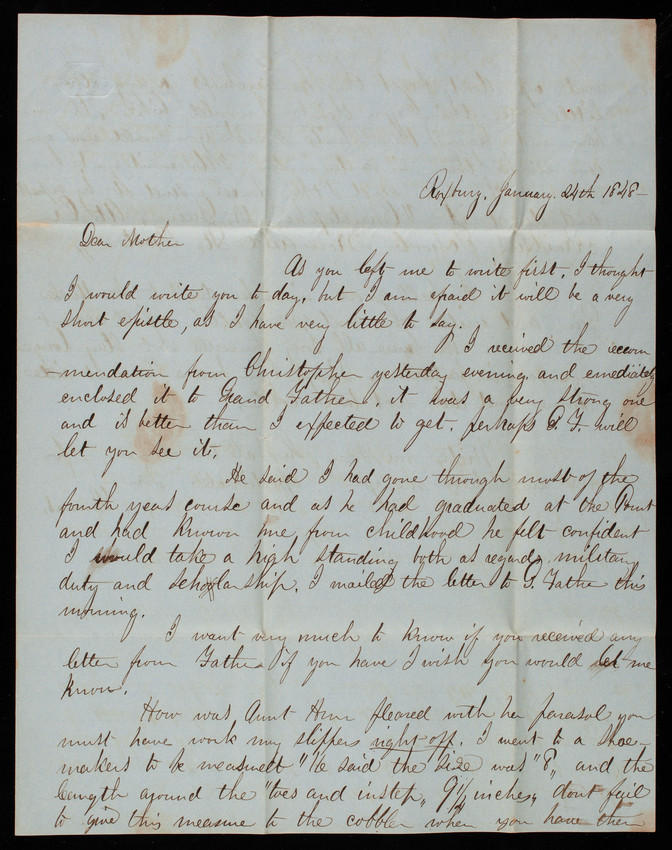 Roxbury, January. 24th 1848-
Dear Mother
As you left me to write first, I thought
I would write you to day, but I am afraid it will be a very
short epistle, as I have very little to say.
I received the recom
-mendation from Christopher yesterday evening, and emediately
enclosed it to Grand Father, it was a very strong one
and is better than I expected to get. perhaps G. F. will
let you see it.
He said I had gone through most of the
fourth years course and as he had graduated at the Point
and had known me from childhood he felt confident
I would take a high standing both as regards military
duty and scholarship. I mailed the letter to G. Father this
morning.
I want very much to know if you received any
letter from Father if you have I wish you would let me
know.
How was Aunt pleased with her parasol you
must have work my slippers right off. I went to a shoe-
makers to be measured "he said the size was "8", and the
length around the "toes and instep, 9½ inches, dont fail
to give this measure to the cobbler when you have them